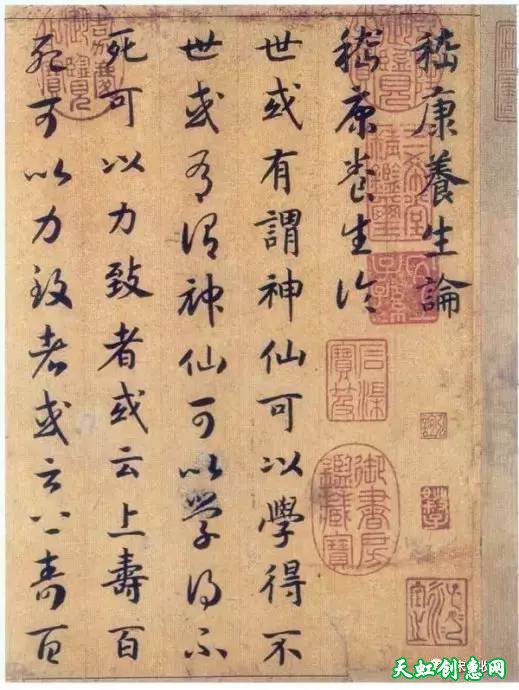 嵇康養生論
嵇康養生論
世或有謂神仙可以學得不
世或有謂神仙可以學得不
死可以力致者或云上壽百
死可以力致者或云上壽百
御書房鑑藏寶
石渠寶笈
三希堂精鑑璽
天虹创意网